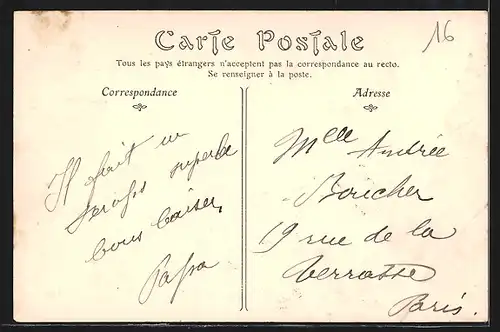 Carte Postale
16
Tous les pays étrangers n'acceptent pas la correspondance au recto.
Se renseigner à la poste.
Correspondance
Il fait un
temps superbe
bons baisers
Papa
Adresse
Mlle Andrée
Boucher
19 rue de la
Terrasse
Paris.